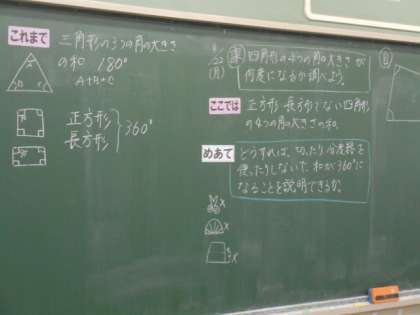 これまで
三角形の3つの角の大きさ
の和 180°
A+B+C
正方形
長方形
360°
5/22
(月)
四角形の4つの角の大きさが
何度になるか調べよう。
ここでは
正方形・長方形でない四角形
の4つの角の大きさの和。
めあて
どうすれば、切ったり分度器を
使ったりしないで、和が360°に
なることを説明できるか。
×
×
×